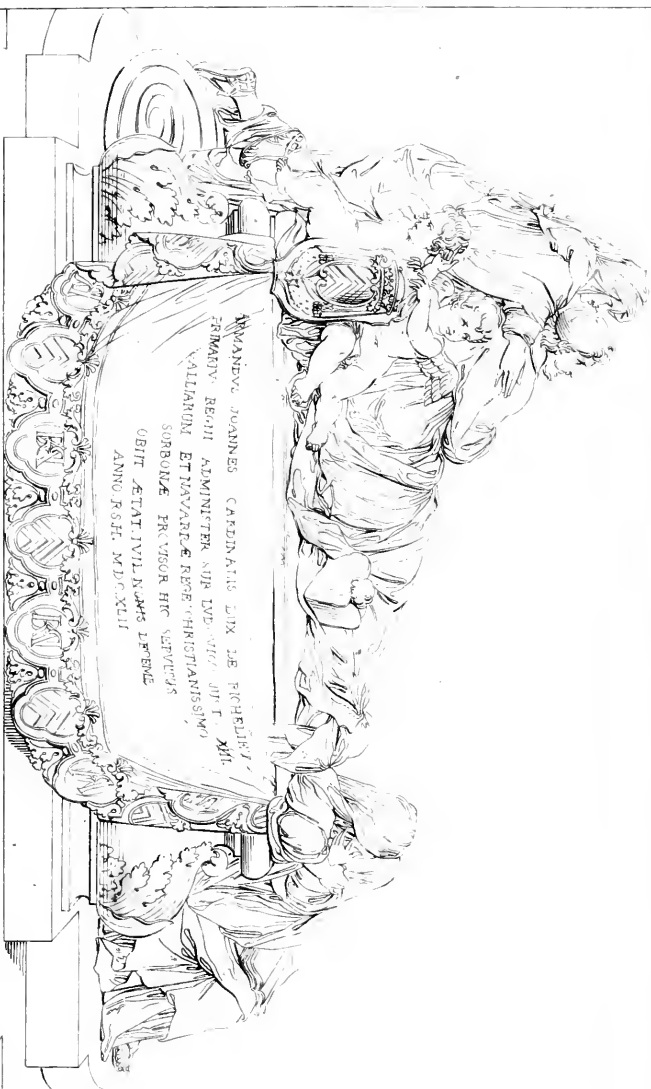 ARMANDVS JOANNES CARDINALIS DUX DE RICHELIEV
PRIMARIV REGII ADMINISTER SUB LVDOVICO JUST XIII
GALLIARUM ET NAVARRÆ REGE CHRISTIANISSIMO
SORBONÆ PROVISOR HIC SEPVLTUS
OBIIT ÆTAT
ANNO R.S.H. MDCXLII